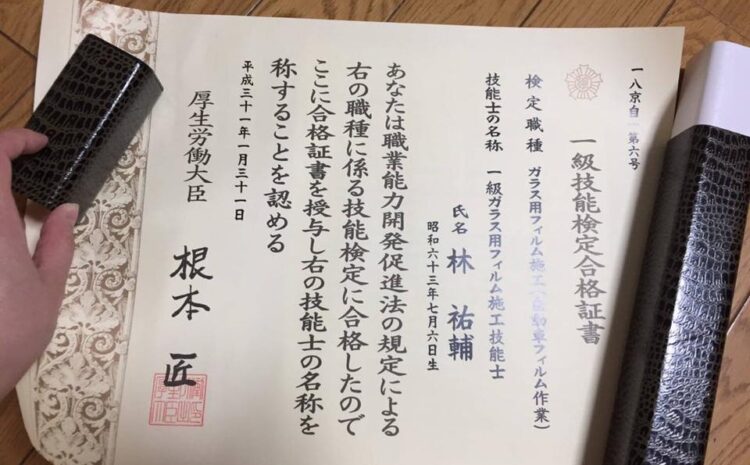 一八京自 第六号
一級技能検定合格証書
検定職種 ガラス用フィルム施工(自動車フィルム作業)
技能士の名称 一級ガラス用フィルム施工技能士
氏名 林 祐輔
昭和六十三年七月六日生
あなたは職業能力開発促進法の規定による
右の職種に係る技能検定に合格したので
ここに合格証書を授与し右の技能士の名称を
称することを認める
平成三十一年一月三十一日
厚生労働大臣 根本 匠